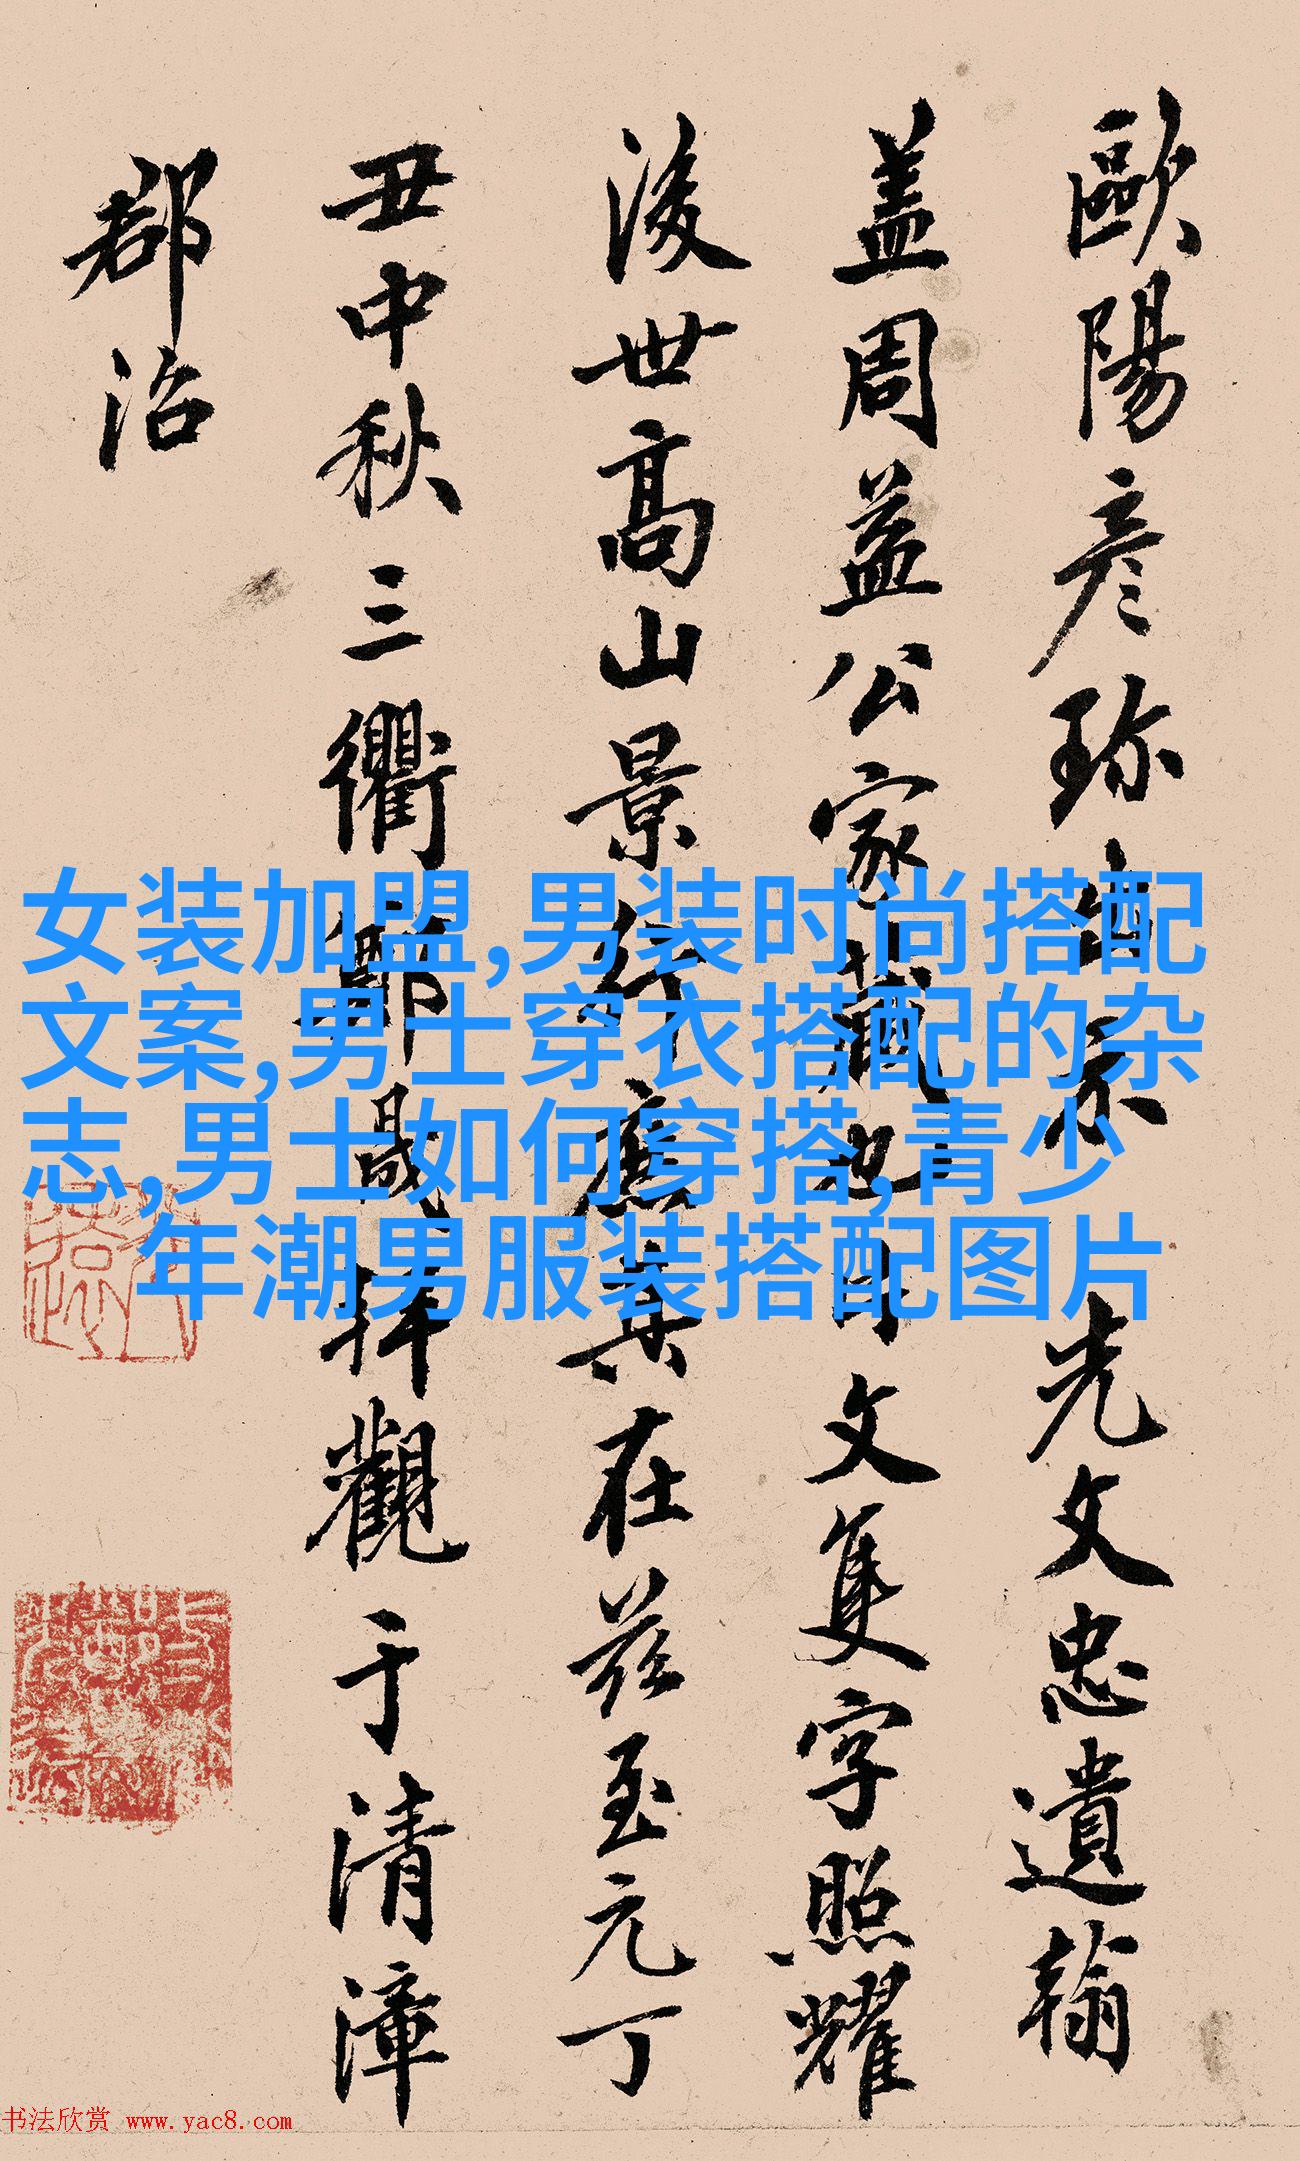 歐陽彦珎出示 光文忠遺翰
盖周益公家藏也 片文隻字照耀
後世高山景行廌其在兹至元丁
丑中秋三衢鄭晟拜觀于清漳
郡治
女装加盟,男装时尚搭配
文案,男士穿衣搭配的杂
志,男士如何穿搭,青少
年潮男服装搭配图片
书法欣赏 www.yac8.com